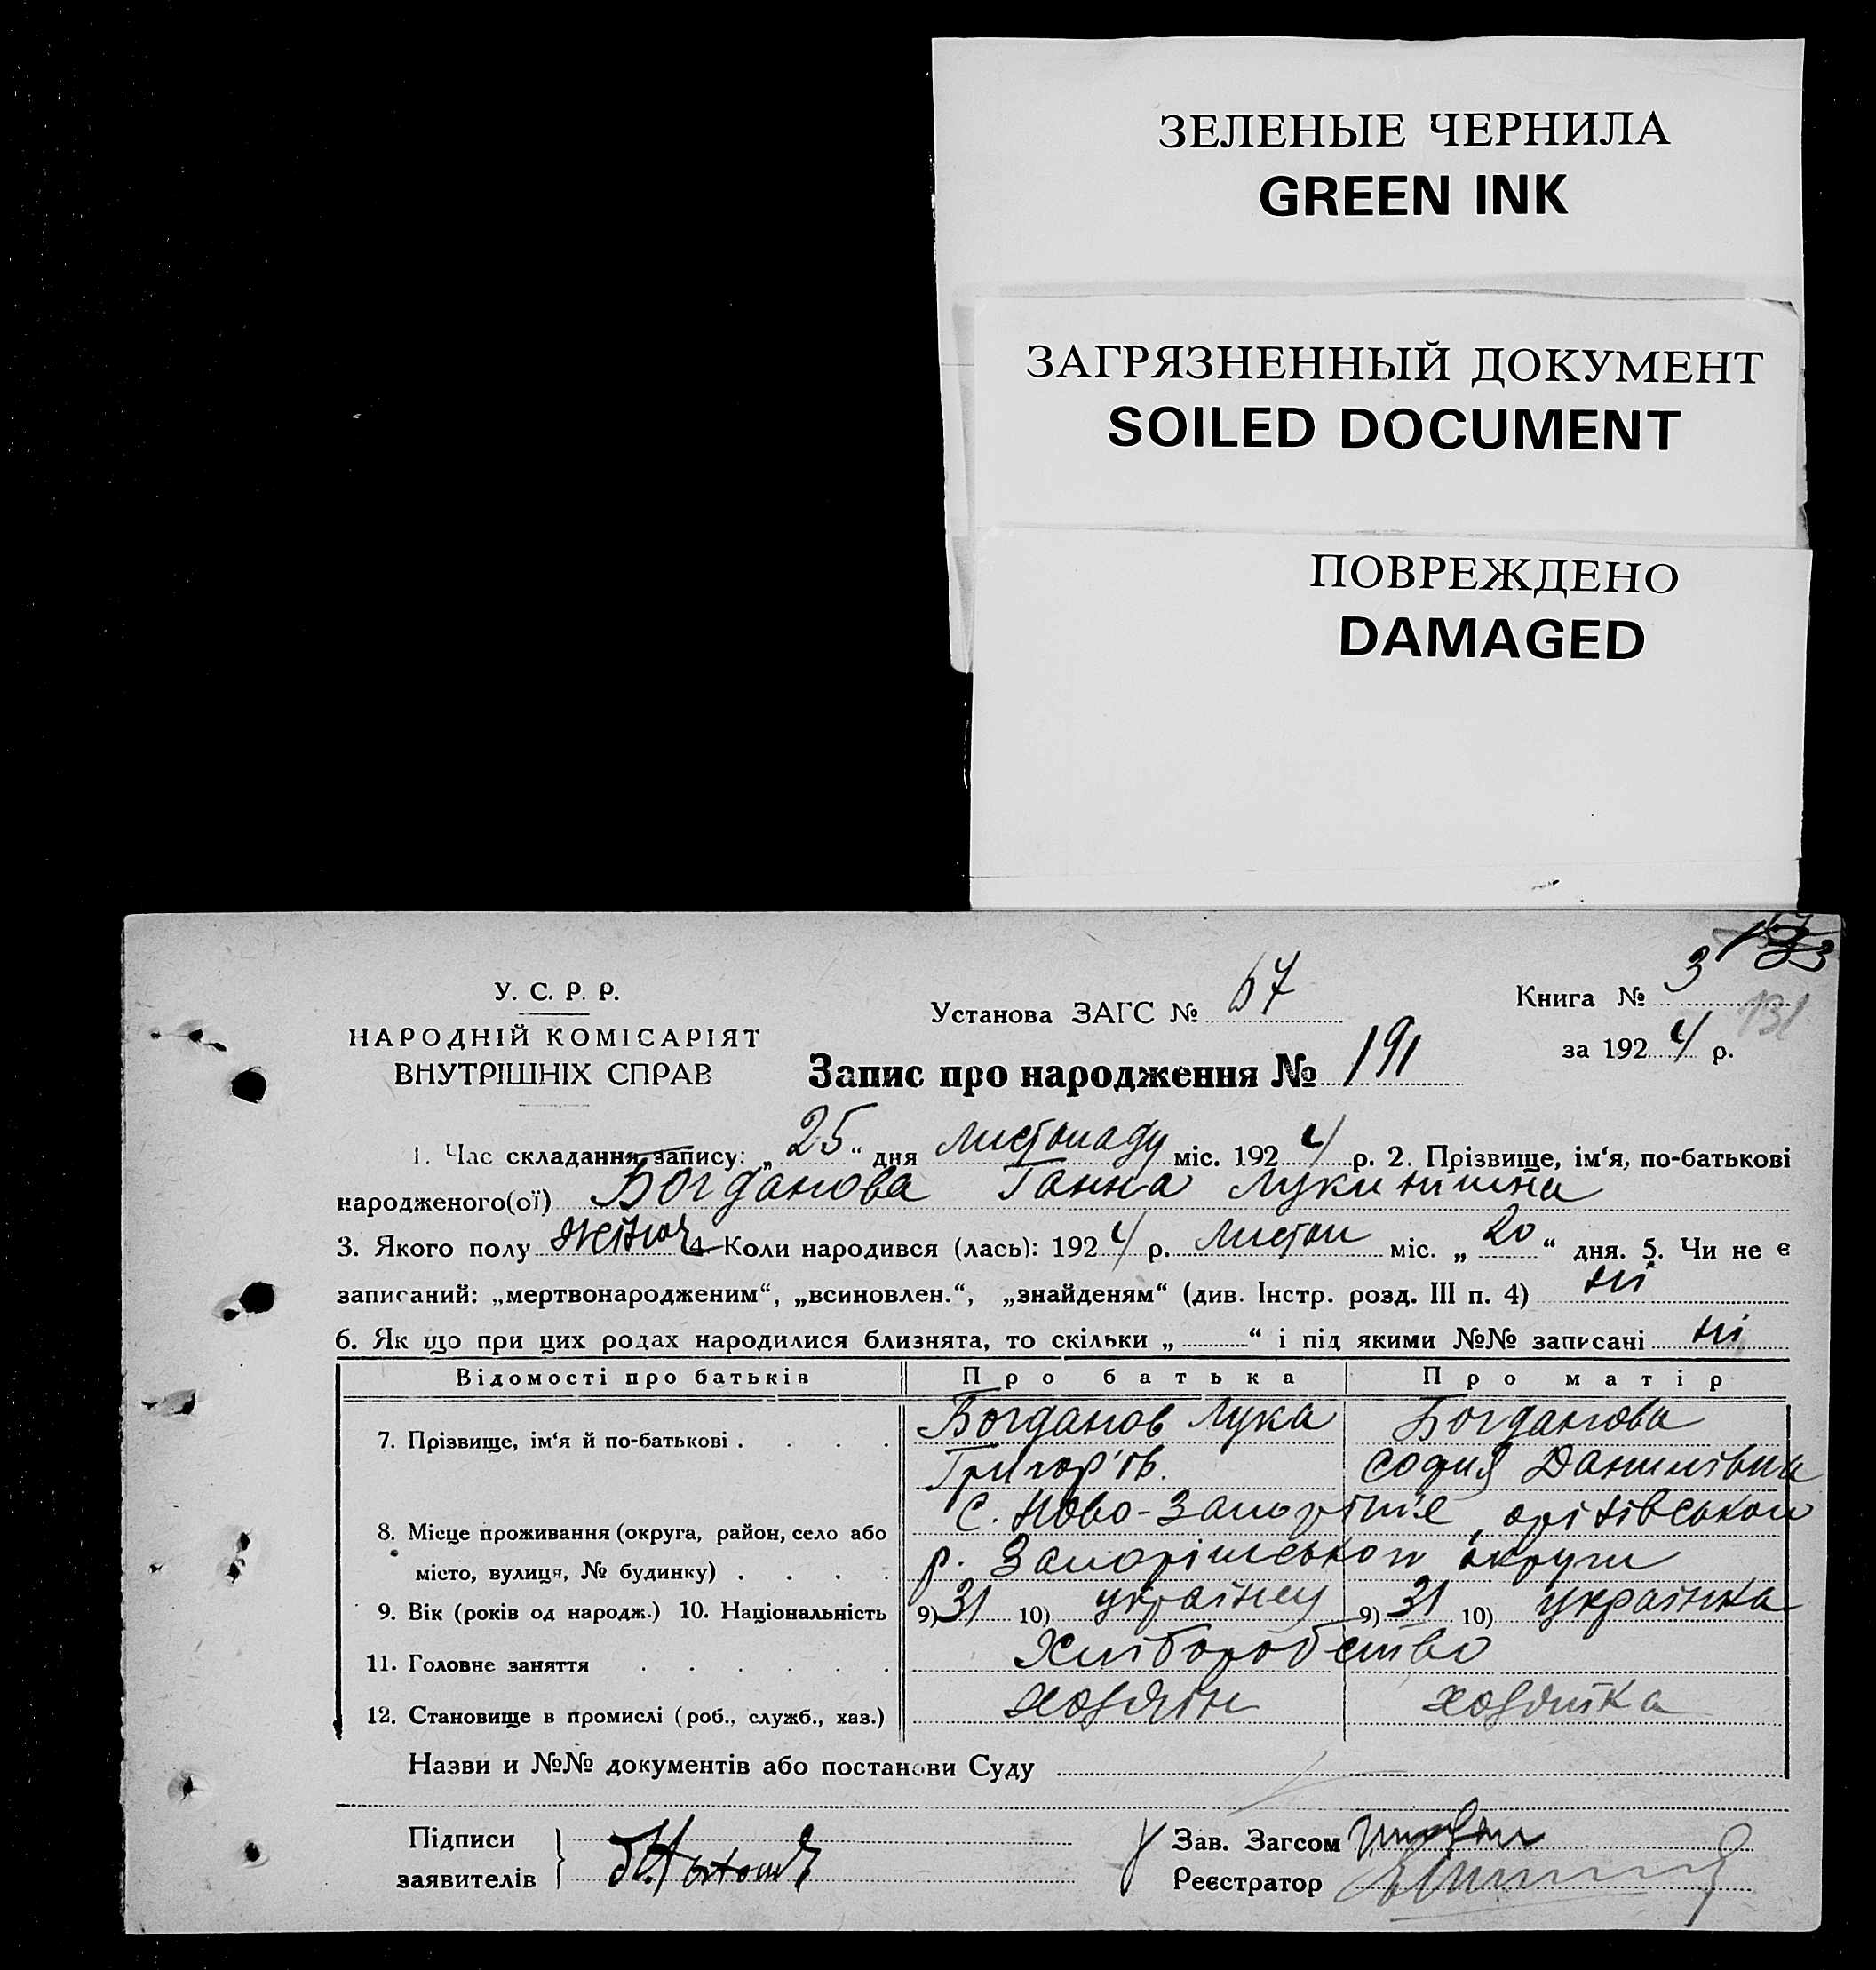 ЗЕЛЕНЫЕ ЧЕРНИЛА
GREEN INK
ЗАГРЯЗНЕННЫЙ ДОКУМЕНТ
SOILED DOCUMENT
ПОВРЕЖДЕНО
DAMAGED
У. С. Р. Р.
НАРОДНІЙ КОМІСАРІЯТ
ВНУТРІШНІХ СПРАВ
Установа ЗАГС № 67
Книга № 3
131
за 1924 р.
Запис про народження № 191
1. Час складання запису: „25“ дня листопаду міс. 1924 р. 2. Прізвище, ім‘я, по-батькові
народженого(ої) Богданова Ганна Лукинишна
3. Якого полу жіноч 4. Коли народився (лась): 1924 р. листоп міс. „20“ дня. 5. Чи не є
записаний: „мертвонародженим“, „всиновлен.“, „знайденям“ (див. Інстр. розд. III п. 4) ні
6. Як що при цих родах народилися близнята, то скільки „ “ і під якими №№ записані ні
Відомості про батьків Про батька Про матір
7. Прізвище, ім‘я й по-батькові . . . . Богданов Лука Богданова
Григор'їв. София Данилівна
8. Місце проживання (округа, район, село або С. Ново-Запоріжжє, оріхівського
місто, вулиця, № будинку) . . . . р. Запоріжської округи
9. Вік (років од народж.) 10. Національність 9) 31 10) українец 9) 31 10) українка
11. Головне заняття . . . . . . Хліборобство
12. Становище в промислі (роб., служб., хаз.) хозяін хозяйка
Назви и №№ документів або постанови Суду
Підписи
заявителів
Зав. Загсом
Реєстратор